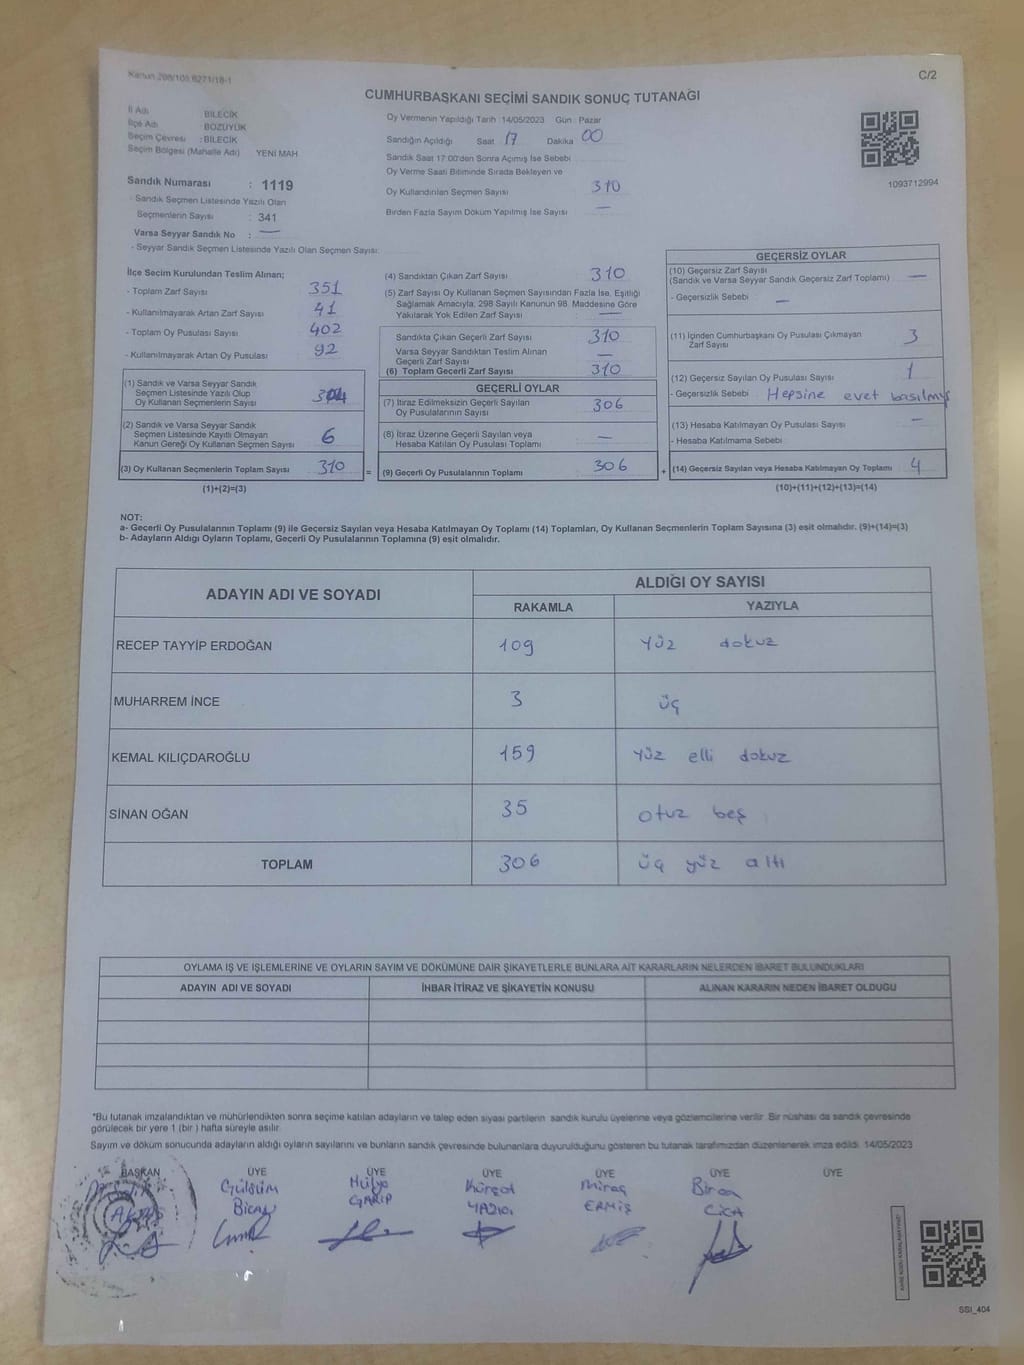 Kanun 298/105,6271/18-1
C/2
CUMHURBAŞKANI SEÇİMİ SANDIK SONUÇ TUTANAĞI
İl Adı : BİLECİK
İlçe Adı : BOZÜYÜK
Seçim Çevresi : BİLECİK
Seçim Bölgesi (Mahalle Adı) YENİ MAH
Sandık Numarası : 1119
- Sandık Seçmen Listesinde Yazılı Olan
Seçmenlerin Sayısı : 341
Varsa Seyyar Sandık No : —
- Seyyar Sandık Seçmen Listesinde Yazılı Olan Seçmen Sayısı:
Oy Vermenin Yapıldığı Tarih :14/05/2023 Gün : Pazar
Sandığın Açıldığı Saat 17 Dakika 00
Sandık Saat 17:00'den Sonra Açılmış İse Sebebi
Oy Verme Saati Bitiminde Sırada Bekleyen ve
Oy Kullandırılan Seçmen Sayısı 310
Birden Fazla Sayım Döküm Yapılmış İse Sayısı —
1093712994
İlçe Seçim Kurulundan Teslim Alınan;
- Toplam Zarf Sayısı 351
- Kullanılmayarak Artan Zarf Sayısı 41
- Toplam Oy Pusulası Sayısı 402
- Kullanılmayarak Artan Oy Pusulası 92
(1) Sandık ve Varsa Seyyar Sandık
Seçmen Listesinde Yazılı Olup
Oy Kullanan Seçmenlerin Sayısı 304
(2) Sandık ve Varsa Seyyar Sandık
Seçmen Listesinde Kayıtlı Olmayan
Kanun Gereği Oy Kullanan Seçmen Sayısı 6
(3) Oy Kullanan Seçmenlerin Toplam Sayısı 310
(1)+(2)=(3)
(4) Sandıktan Çıkan Zarf Sayısı 310
(5) Zarf Sayısı Oy Kullanan Seçmen Sayısından Fazla İse, Eşitliği
Sağlamak Amacıyla; 298 Sayılı Kanunun 98. Maddesine Göre
Yakılarak Yok Edilen Zarf Sayısı —
Sandıkta Çıkan Geçerli Zarf Sayısı 310
Varsa Seyyar Sandıktan Teslim Alınan
Geçerli Zarf Sayısı —
(6) Toplam Geçerli Zarf Sayısı 310
GEÇERLİ OYLAR
(7) İtiraz Edilmeksizin Geçerli Sayılan
Oy Pusulalarının Sayısı 306
(8) İtiraz Üzerine Geçerli Sayılan veya
Hesaba Katılan Oy Pusulaları Toplamı —
= (9) Geçerli Oy Pusulalarının Toplamı 306
GEÇERSİZ OYLAR
(10) Geçersiz Zarf Sayısı
(Sandık ve Varsa Seyyar Sandık Geçersiz Zarf Toplamı) —
- Geçersizlik Sebebi : —
(11) İçinden Cumhurbaşkanı Oy Pusulası Çıkmayan
Zarf Sayısı 3
(12) Geçersiz Sayılan Oy Pusulası Sayısı 1
- Geçersizlik Sebebi : Hepsine evet basılmış
(13) Hesaba Katılmayan Oy Pusulası Sayısı —
- Hesaba Katılmama Sebebi :
+ (14) Geçersiz Sayılan veya Hesaba Katılmayan Oy Toplamı 4
(10)+(11)+(12)+(13)=(14)
NOT:
a- Geçerli Oy Pusulalarının Toplamı (9) ile Geçersiz Sayılan veya Hesaba Katılmayan Oy Toplamı (14) Toplamları, Oy Kullanan Seçmenlerin Toplam Sayısına (3) eşit olmalıdır. (9)+(14)=(3)
b- Adayların Aldığı Oyların Toplamı, Geçerli Oy Pusulalarının Toplamına (9) eşit olmalıdır.
ADAYIN ADI VE SOYADI ALDIĞI OY SAYISI
RAKAMLA YAZIYLA
RECEP TAYYİP ERDOĞAN 109 yüz dokuz
MUHARREM İNCE 3 üç
KEMAL KILIÇDAROĞLU 159 yüz elli dokuz
SİNAN OĞAN 35 otuz beş
TOPLAM 306 üç yüz altı
OYLAMA İŞ VE İŞLEMLERİNE VE OYLARIN SAYIM VE DÖKÜMÜNE DAİR ŞİKAYETLERLE BUNLARA AİT KARARLARIN NELERDEN İBARET BULUNDUKLARI
ADAYIN ADI VE SOYADI İHBAR İTİRAZ VE ŞİKAYETİN KONUSU ALINAN KARARIN NEDEN İBARET OLDUĞU
*Bu tutanak imzalandıktan ve mühürlendikten sonra seçime katılan adayların ve talep eden siyasi partilerin sandık kurulu üyelerine veya gözlemcilerine verilir. Bir nüshası da sandık çevresinde
görülecek bir yere 1 (bir ) hafta süreyle asılır.
Sayım ve döküm sonucunda adayların aldığı oyların sayılarını ve bunların sandık çevresinde bulunanlara duyurulduğunu gösteren bu tutanak tarafımızdan düzenlenerek imza edildi. 14/05/2023
BAŞKAN ÜYE ÜYE ÜYE ÜYE ÜYE ÜYE
Gülsüm Hülya Kürşat Miraç
GARİP ERMİŞ
SSI_404